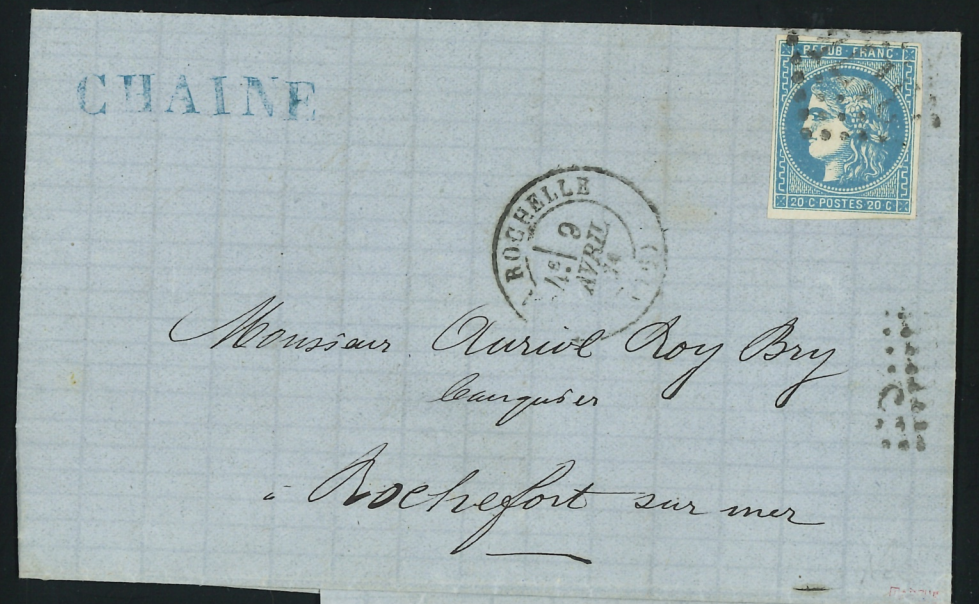 CHAINE
REPUB · FRANC ·
20 C POSTES 20 C
ROCHELLE
9
AVRIL
Monsieur Auriol Roy Bry
banquier
à Rochefort sur mer